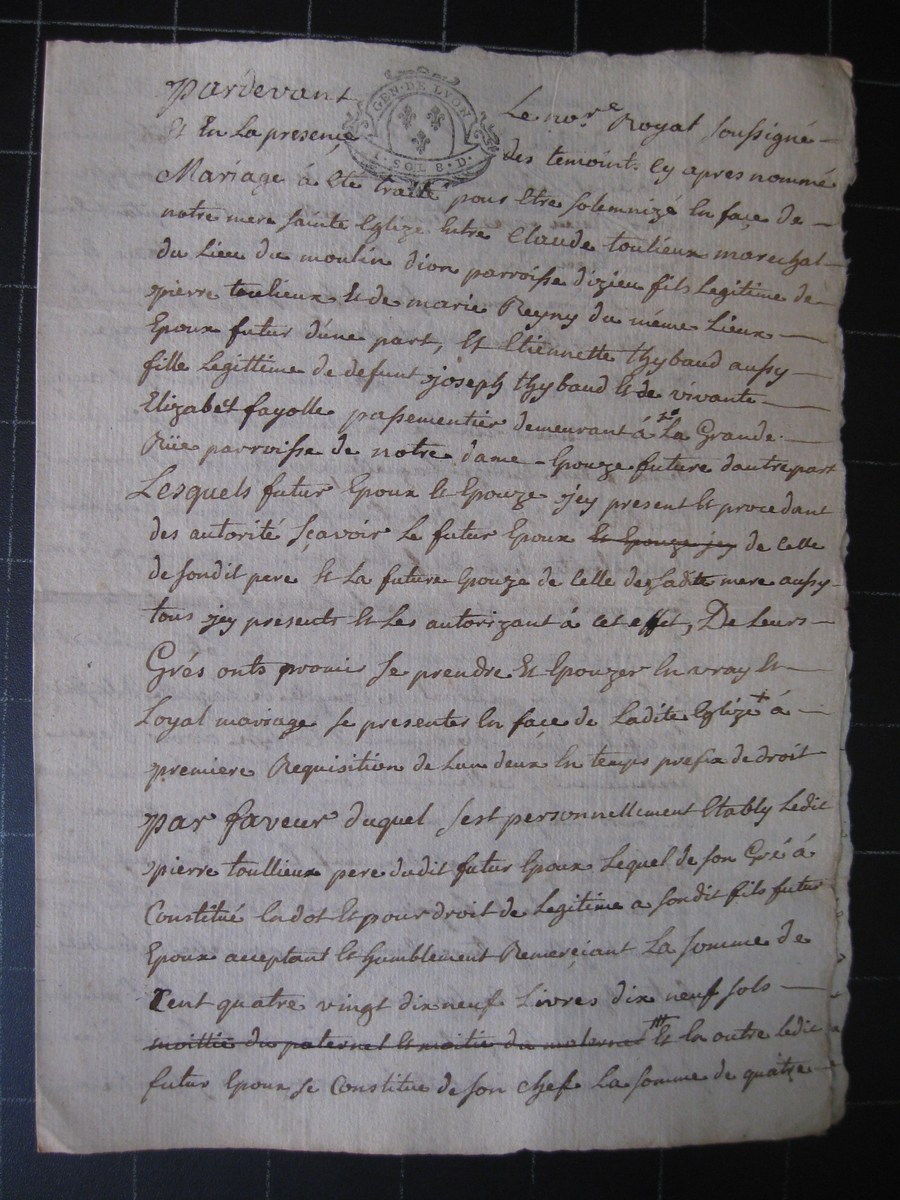 pardevant Le no.re Royal soussigné
GEN. DE LYON
1. SOL 8. D.
Et En La presençe des temoint. Cy apres nommé
Mariage á Eté traité pour Etre solemnizé En façe de
notre mere sainte Eglize Entre Claude toulieux marechal
du Lieu du moulin d'ion parroisse d'izieu fils Legitime de
pierre toulieux Et de marie Reyny du même Lieux
Epoux futur d'une part, Et Etiennette thybaud aussy
fille Legittime de defunt joseph thybaud Et de vivante
Elizabet fayolle passementier demeurant á La Grande
Rüe parroisse de notre dame Epouze future d'autre part
Lesquels futur Epoux Et Epouze jcy present Et procedant
des autorité sçavoir Le futur Epoux Et Epouze jcy de Celle
de sondit pere Et La future Epouze de Celle de sadite mere aussy
tous jcy presents Et Les autorizant á cet effet, De Leurs
Grés onts promis se prendre Et Epouzer En vray Et
Loyal mariage se presenter En face de Ladite Eglize á
premiere Requisition de Lun deux En temps prefix de droit
par faveur duquel s'est personnellement Etably Ledit
pierre toullieux pere dudit futur Epoux Lequel de son Gré á
Constitué En dot Et pour droit de Legitime a sondit fils futur
Epoux acceptant Et humblement Remerçiant La somme de
Cent quatre vingt dix neuf Livres dix neuf sols
moittié du paternel Et moitié du maternel Et En outre Ledit
futur Epoux se Constitue de son Chef La somme de quatre